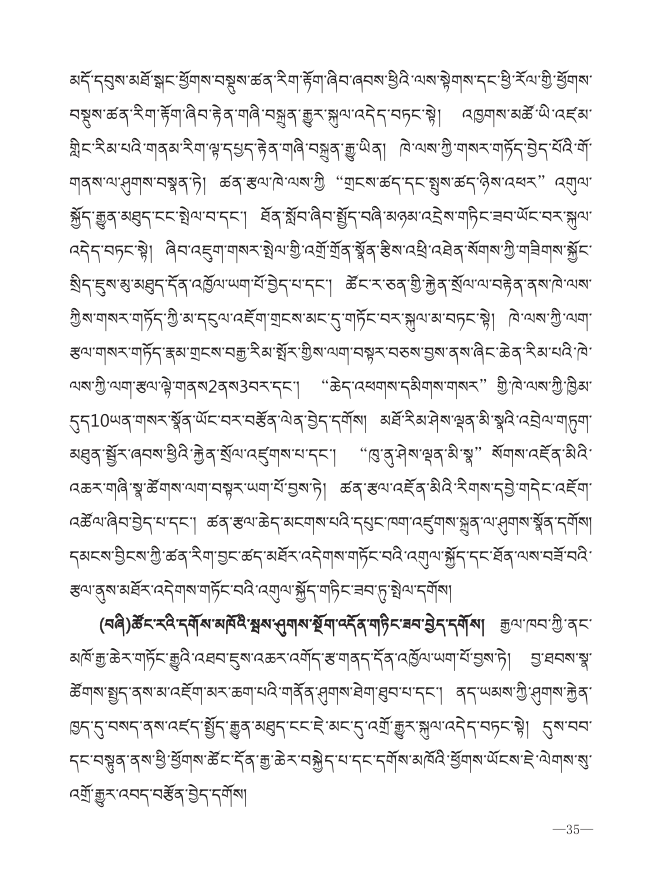 མདོ་དབུས་མཐོ་སྒང་ཕྱོགས་བསྡུས་ཚན་རིག་རྟོག་ཞིབ་ཞབས་ཕྱིའི་ལས་སྟེགས་དང་ཕྱི་རོལ་གྱི་ཕྱོགས་
བསྡུས་ཚན་རིག་རྟོག་ཞིབ་རྟེན་གཞི་བསྐྲུན་རྒྱུར་སྐུལ་འདེད་བཏང་སྟེ། འཁྱགས་མཚོ་ཡི་འཛམ་
གླིང་རིམ་པའི་གནམ་རིག་ལྟ་དཔྱད་རྟེན་གཞི་བསྐྲུན་རྒྱུ་ཡིན། ཁེ་ལས་ཀྱི་གསར་གཏོད་བྱེད་པོའི་གོ་
གནས་ལ་ཤུགས་བསྣན་ཏེ། ཚན་རྩལ་ཁེ་ལས་ཀྱི “གྲངས་ཚད་དང་སྤུས་ཚད་ཉིས་འཕར” འགུལ་
སྐྱོད་རྒྱུན་མཐུད་ངང་སྤེལ་བ་དང་། ཐོན་སློབ་ཞིབ་སྤྱོད་བཞི་མཉམ་འདྲེས་གཏིང་ཟབ་ཡོང་བར་སྐུལ་
འདེད་བཏང་སྟེ། ཞིབ་འཇུག་གསར་སྤེལ་གྱི་འགྲོ་གྲོན་སྣོན་རྩིས་འཕྲི་འཐེན་སོགས་ཀྱི་གཟིགས་སྐྱོང་
སྲིད་ཇུས་མུ་མཐུད་དོན་འཁྱོལ་ཡག་པོ་བྱེད་པ་དང་། ཚོང་ར་ཅན་གྱི་རྐྱེན་སྲོལ་ལ་བརྟེན་ནས་ཁེ་ལས་
ཀྱིས་གསར་གཏོད་ཀྱི་མ་དངུལ་འཇོག་གྲངས་མང་དུ་གཏོང་བར་སྐུལ་མ་བཏང་སྟེ། ཁེ་ལས་ཀྱི་ལག་
རྩལ་གསར་གཏོད་རྣམ་གྲངས་བརྒྱ་རིམ་སྤོར་གྱིས་ལག་བསྟར་བཅས་བྱས་ནས་ཞིང་ཆེན་རིམ་པའི་ཁེ་
ལས་ཀྱི་ལག་རྩལ་ལྟེ་གནས2ནས3བར་དང་། “ཆེད་འཕགས་དམིགས་གསར” གྱི་ཁེ་ལས་ཀྱི་ཁྱིམ་
དུད10ཡན་གསར་སྣོན་ཡོང་བར་བརྩོན་ལེན་བྱེད་དགོས། མཐོ་རིམ་ཤེས་ལྡན་མི་སྣའི་འབྲེལ་གཏུག་
མཐུན་སྦྱོར་ཞབས་ཕྱིའི་རྐྱེན་སྲོལ་འཛུགས་པ་དང་། “ཁུ་ནུ་ཤེས་ལྡན་མི་སྣ” སོགས་འཇོན་མིའི་
འཆར་གཞི་སྣ་ཚོགས་ལག་བསྟར་ཡག་པོ་བྱས་ཏེ། ཚན་རྩལ་འཇོན་མིའི་རིགས་དབྱེ་གདེང་འཇོག་
འཚོལ་ཞིབ་བྱེད་པ་དང་། ཚན་རྩལ་ཆེད་མངགས་པའི་དཔུང་ཁག་འཛུགས་སྐྲུན་ལ་ཤུགས་སྣོན་དགོས།
དམངས་བྱིངས་ཀྱི་ཚན་རིག་བྱང་ཚད་མཐོར་འདེགས་གཏོང་བའི་འགུལ་སྐྱོད་དང་ཐོན་ལས་བཟོ་བའི་
རྩལ་ནུས་མཐོར་འདེགས་གཏོང་བའི་འགུལ་སྐྱོད་གཏིང་ཟབ་ཏུ་སྤེལ་དགོས།
(བཞི)ཚོང་རའི་དགོས་མཁོའི་སྦས་ཤུགས་སྔོག་འདོན་གཏིང་ཟབ་བྱེད་དགོས། རྒྱལ་ཁབ་ཀྱི་ནང་
མཁོ་རྒྱ་ཆེར་གཏོང་རྒྱུའི་འཐབ་ཇུས་འཆར་འགོད་རྩ་གནད་དོན་འཁྱོལ་ཡག་པོ་བྱས་ཏེ། བྱ་ཐབས་སྣ་
ཚོགས་སྤྱད་ནས་མ་འཇོག་མར་ཆག་པའི་གནོན་ཤུགས་ཐེག་ཐུབ་པ་དང་། ནད་ཡམས་ཀྱི་ཤུགས་རྐྱེན་
ཁྱད་དུ་བསད་ནས་འཛད་སྤྱོད་རྒྱུན་མཐུད་ངང་ཇེ་མང་དུ་འགྲོ་རྒྱུར་སྐུལ་འདེད་བཏང་སྟེ། དུས་བབ་
དང་བསྟུན་ནས་ཕྱི་ཕྱོགས་ཚོང་དོན་རྒྱ་ཆེར་བསྐྱེད་པ་དང་དགོས་མཁོའི་ཕྱོགས་ཡོངས་ཇེ་ལེགས་སུ་
འགྲོ་རྒྱུར་འབད་བརྩོན་བྱེད་དགོས།
—35—